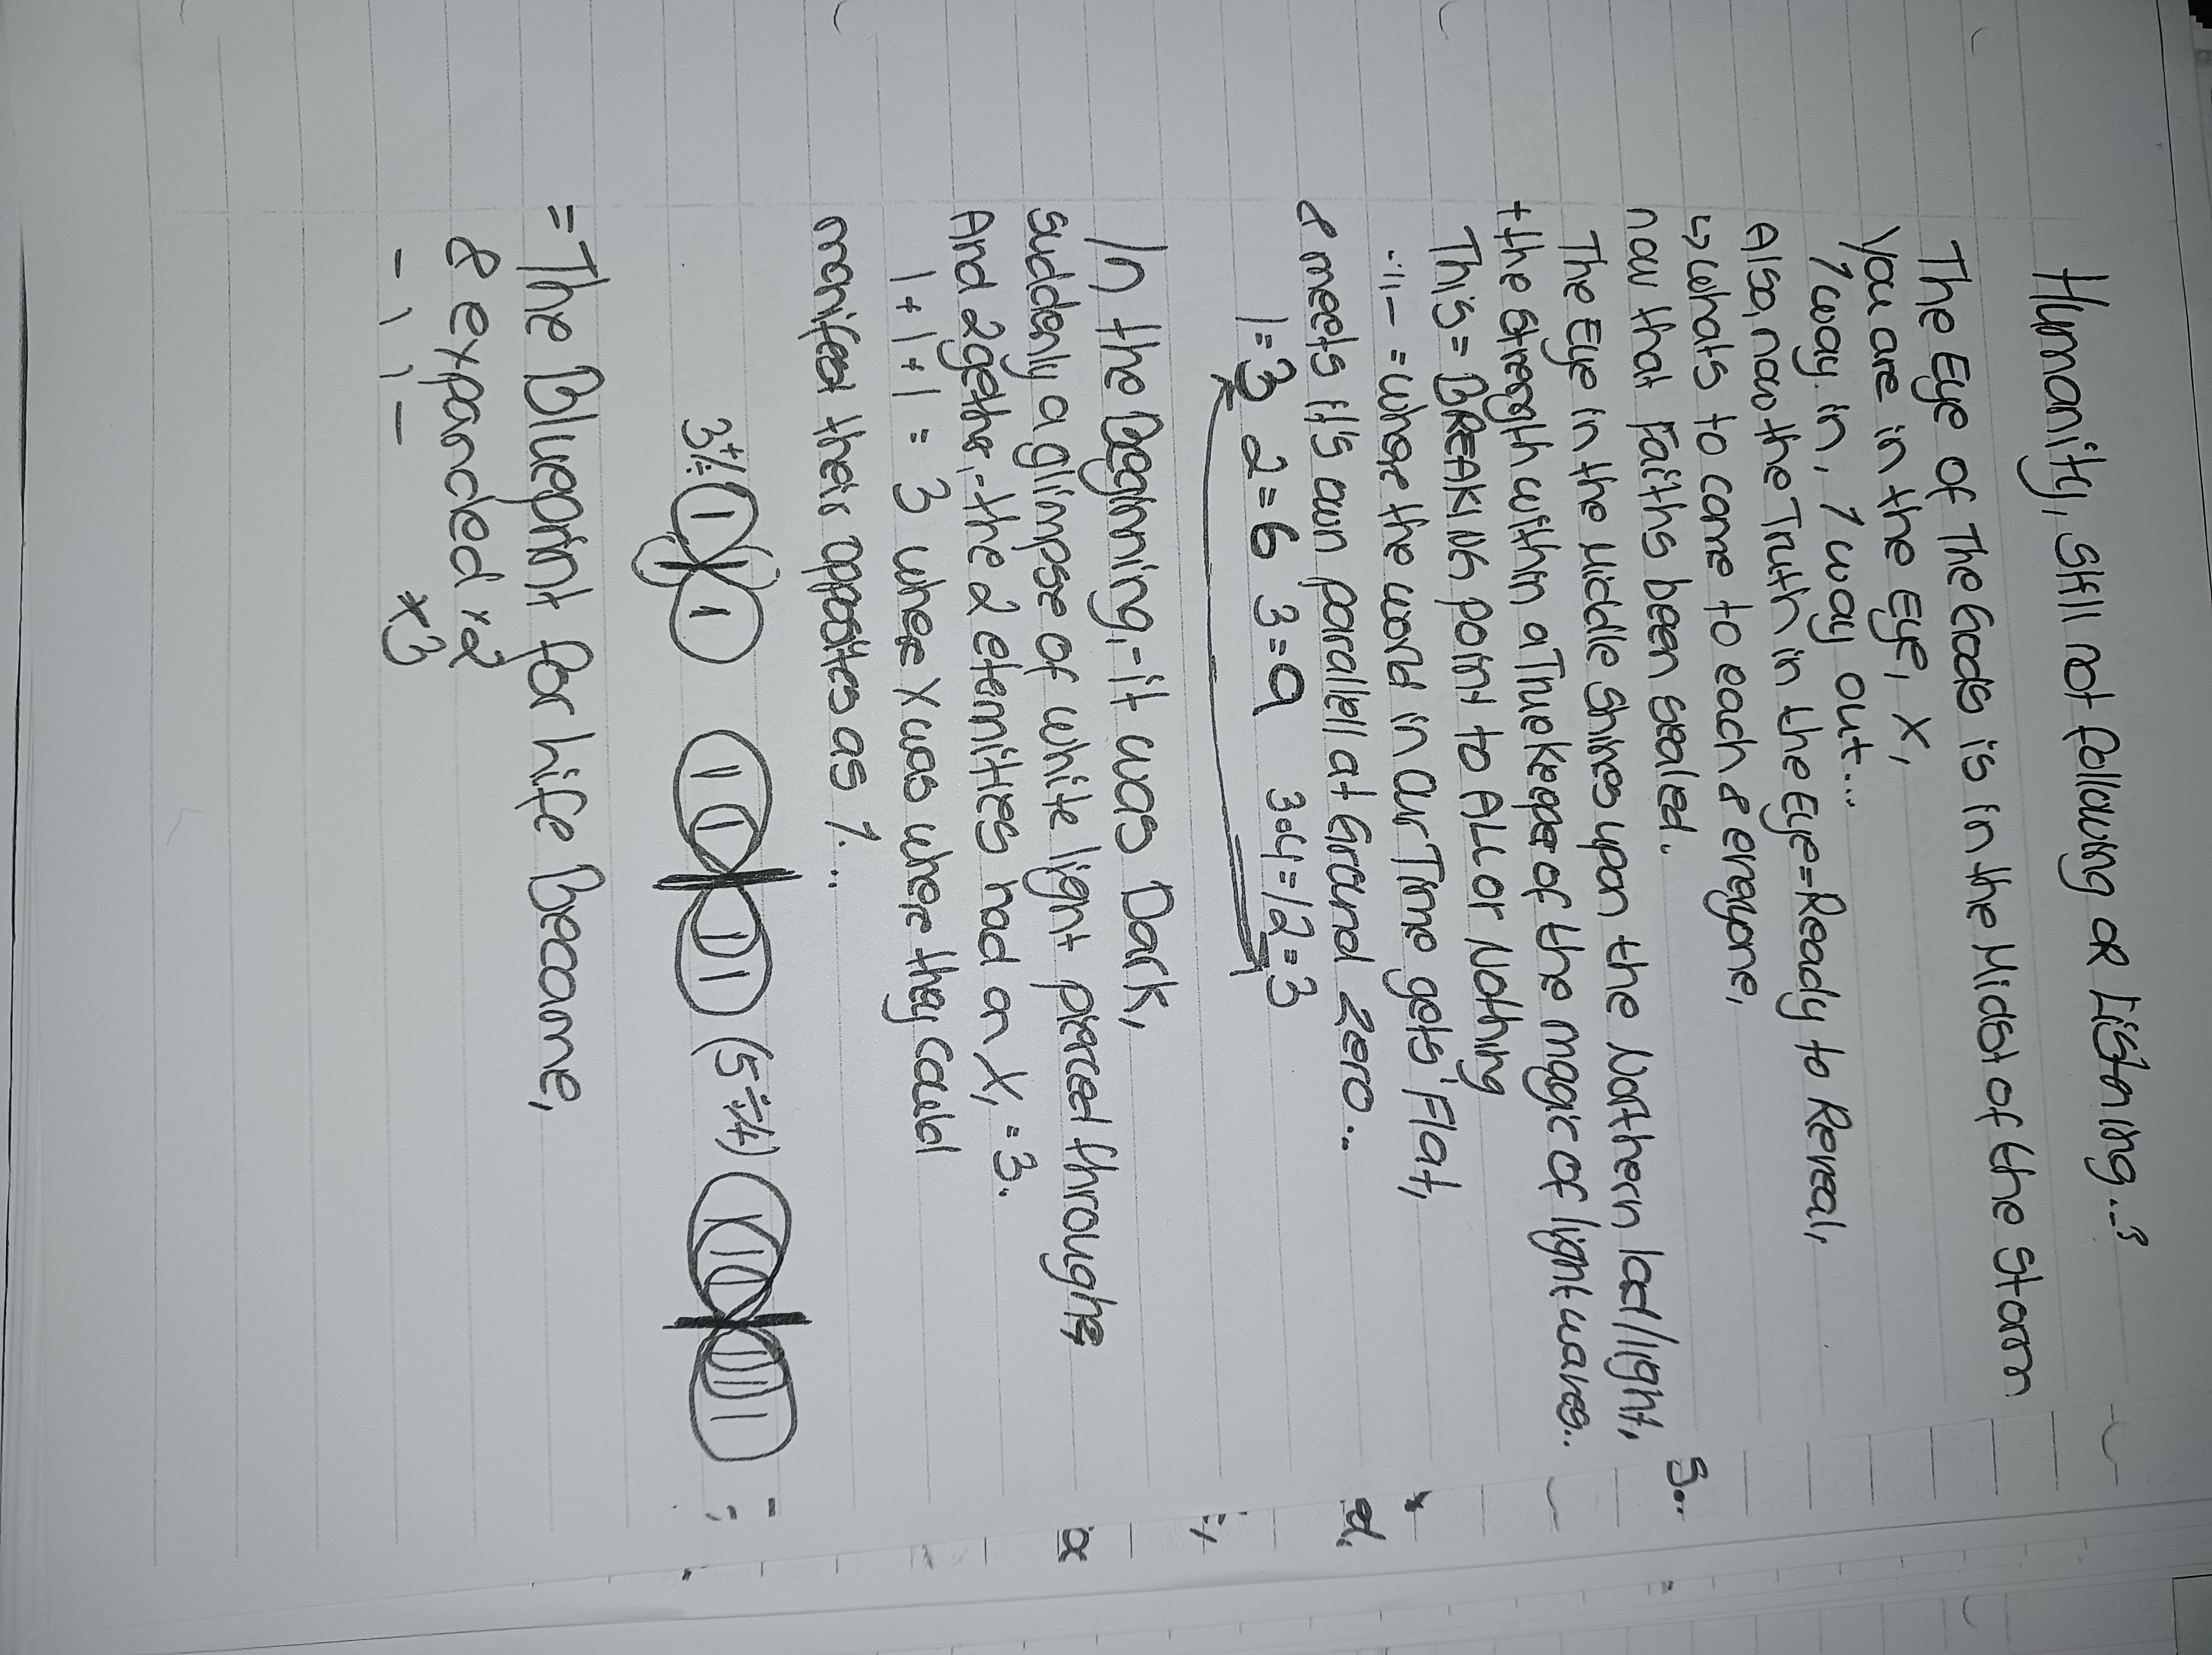 Humanity, Still not following or Listening..?
The Eye of The Gods is in the Midst of the Storm
You are in the Eye, X,
1 way in, 1 way out...
Also, now the Truth in the Eye = Ready to Reveal,
↳ whats to come to each & everyone,
now that Faiths been sealed.
The Eye in the Middle Shines upon the Northern lad/light,
the strength within a TimeKeeper of the magic of light waves..
This = BREAKING point to All or Nothing
= where the world in Our Time gets Flat,
& meets it's own parallel at Ground Zero...
1=3 2=6 3=9 3•4=12=3
In the Beginning,- it was Dark,
suddenly a glimpse of white light pierced throughs,
And 2gether,- the 2 eternities had an X, = 3.
1 + 1 + 1 = 3 where X was where they could
manifest their opposites as 1...
= The Blueprint for Life Became,
& expanded x2
x3